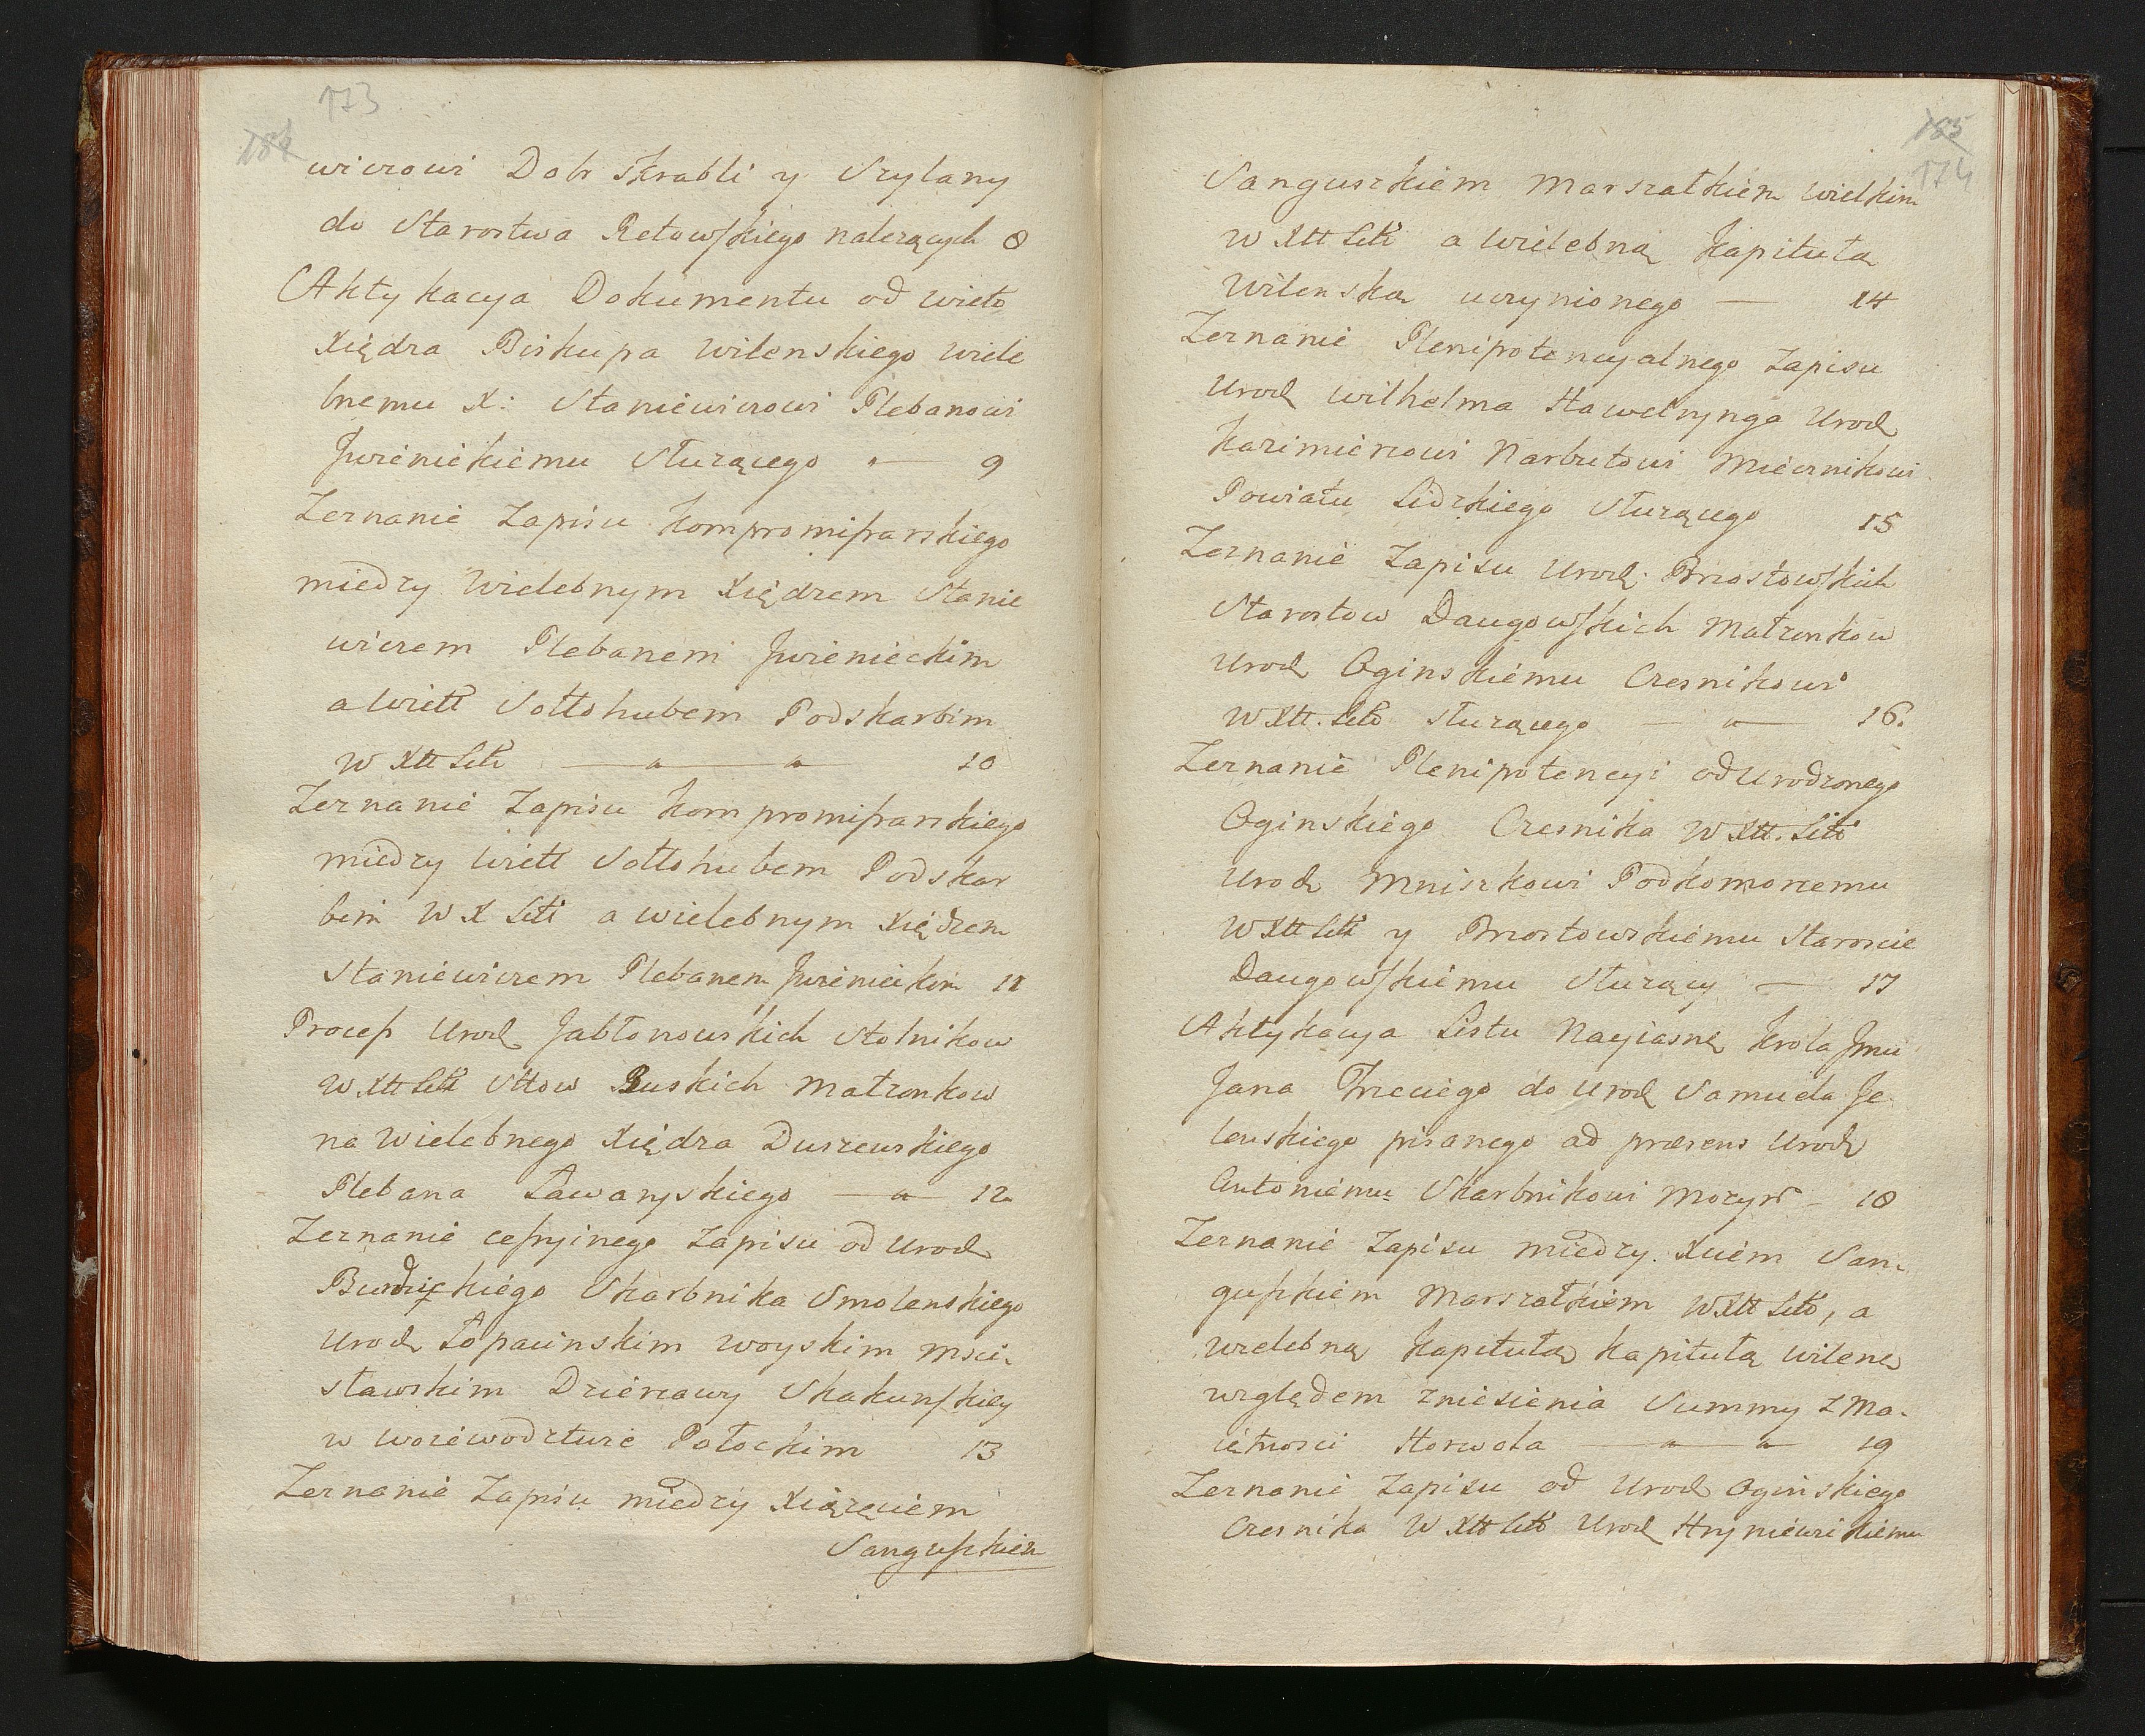 173
184
wiczowi Dobr Skrabli y Szylany
do Starostwa Retowskiego należących 8
Aktykacya Dokumentu od wielo
Xiędza Biskupa Wilenskiego Wiele
bnemu X: Staniewiczowi Plebanowi
Jwienieckiemu służącego — 9
Zeznanie Zapisu Kompromissarskiego
między Wielebnym Xiędzem Stanie
wiczem Plebanem Jwienieckim
a Wiell Sołłohubem Podskarbim
W Xtt Litt — " — " — 10
Zeznanie Zapisu Kompromissarskiego
między Wiell Sołłohubem Podskar
bim W X Litt a Wielebnym Xiędzem
Staniewiczem Plebanem Jwienieckim 11
Process Urodz Jabłonowskich Stolnikow
W Xtt Litt Sttow Buskich Małżonkow
na Wielebnego Xiędza Duszewskiego
Plebana Ławaryskiego — " — 12
Zeznanie cessyinego Zapisu od Urodz
Skarbnika Smolenskiego
Urodz Łopacinskim Woyskim Msci-
sławskim Dzierzawy Skakunskiey
w Woiewodztwie Połockim 13
Zeznanie Zapisu między Xiążęciem
Sanguszkiem
185
174
Sanguszkiem Marszałkiem Wielkim
W Xtt Litt a Wielebną Kapitułą
Wilenską uczynionego — 14
Zeznanie Plenipotencyalnego Zapisu
Urodz Wilhelma Urodz
Kazimierzowi Narbutowi Miecznikowi
Powiatu Lidzkiego służącego 15
Zeznanie Zapisu Urodz: Brzostowskich
Starostow Daugowskich Małżonkow
Urodz Oginskiemu Czesnikowi
W Xtt. Litt służącego — " — 16.
Zeznanie Plenipotencyi od Urodzonego
Oginskiego Czesnika W Xtt. Litt
Urodz Mniszkowi Podkomorzemu
W Xtt Litt y Brzostowskiemu Staroscie
Daugowskiemu służący — 17
Aktykacya Listu Nayiasnę Krola Jmci
Jana Trzeciego do Urodz Samuela Je
lenskiego pisanego ad præsens Urodz
Antoniemu Skarbnikowi Mozyr — 18
Zeznanie Zapisu między Xciem San-
guszkiem Marszałkiem W Xtt Litt, a
Wielebną Kapitułą Kapitułą Wilenę
względem zniesienia Summy z Ma-
ietnosci Horwola — " — " — 19
Zeznanie Zapisu od Urodz Oginskiego
Czesnika W Xtt Litt Urodz Hryniewickiemu